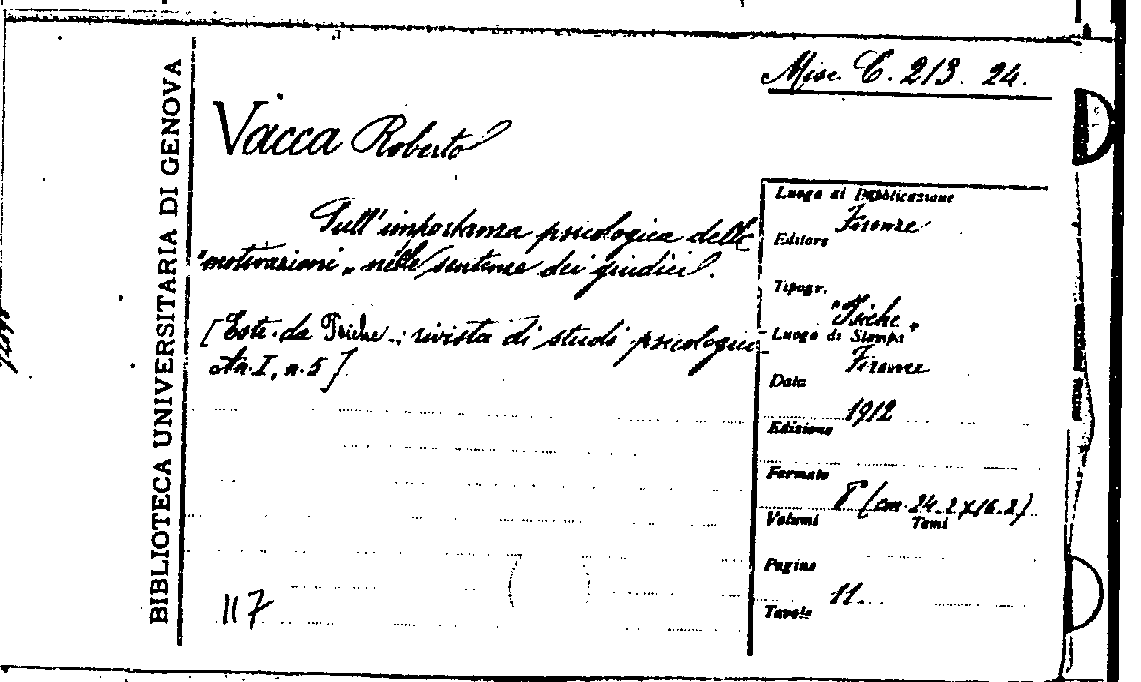 BIBLIOTECA UNIVERSITARIA DI GENOVA
Misc. C. 213. 24.
Vacca Roberto
Sull'importanza psicologica delle
"motivazioni" nelle sentenze dei giudici.
[Estr. da Psiche: rivista di studi psicologici
An. I, n. 5]
117
Luogo di Pubblicazione
Firenze
Editore
Tipogr.
"Psiche"
Luogo di Stampa
Firenze
Data
1912
Edizione
Formato
8° (cm. 24.2x16.2)
Volumi Tomi
Pagine
11.
Tavole